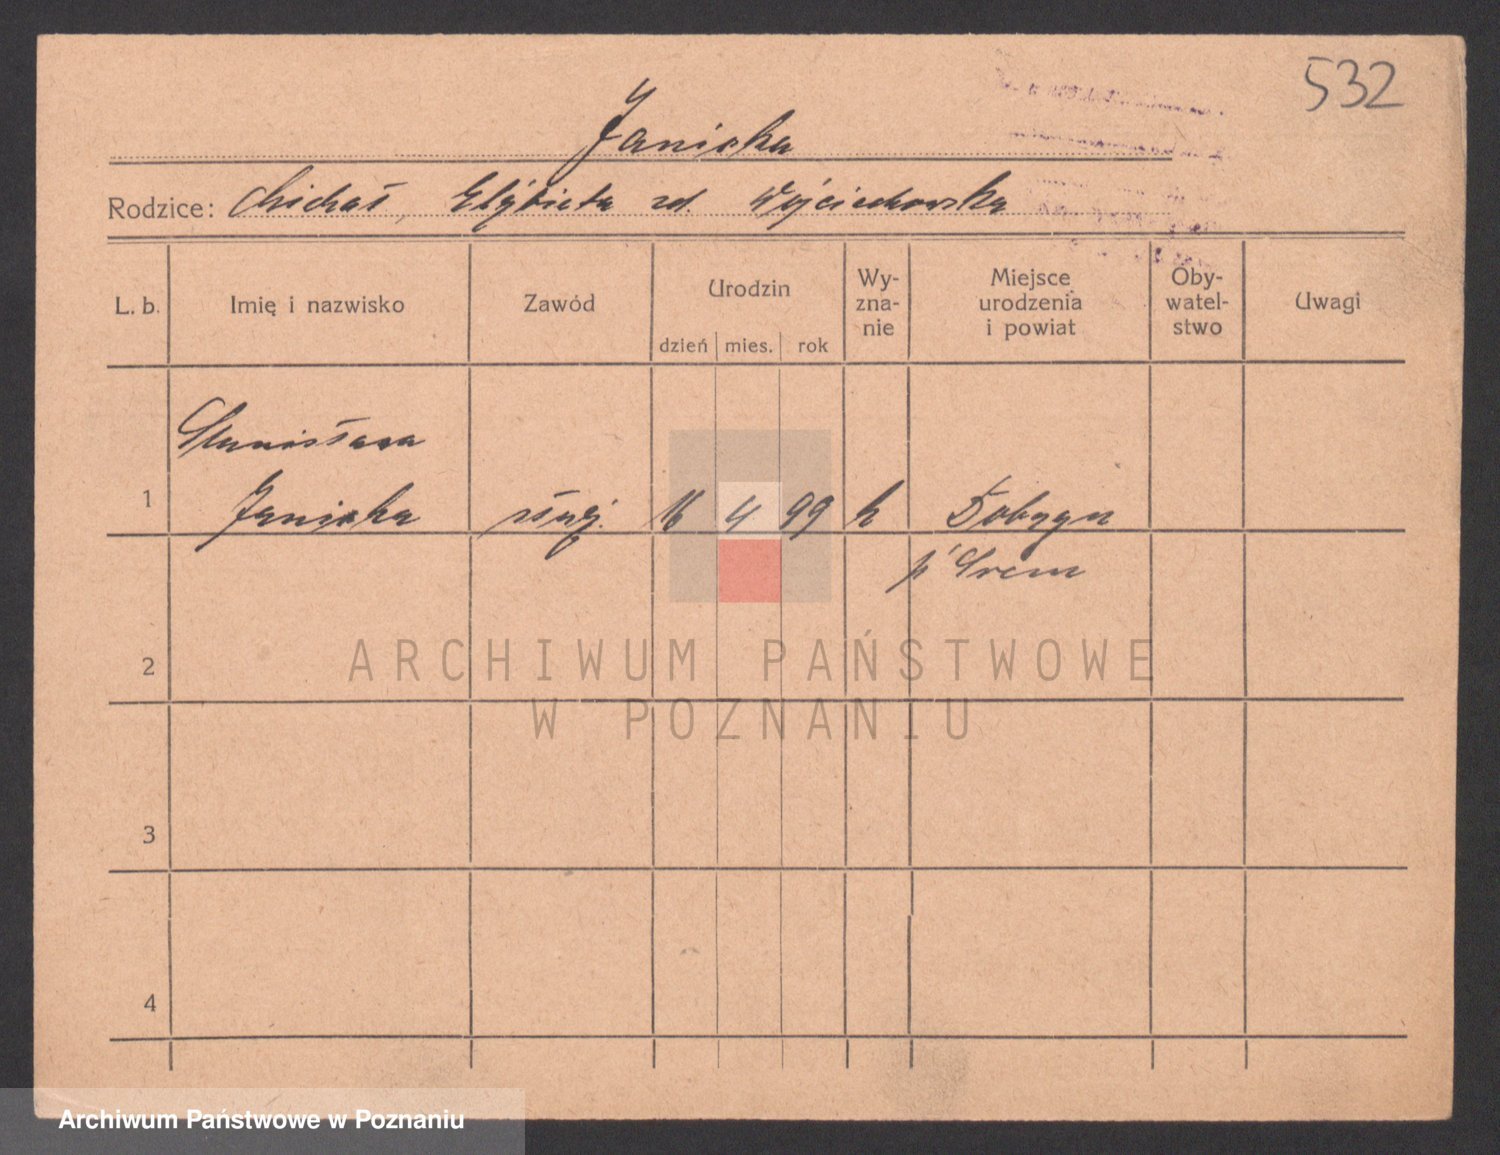 532
Janicka
Rodzice: Michał, Elżbieta zd. Wojciechowska
L. b. Imię i nazwisko Zawód Urodzin dzień mies. rok Wy-zna-nie Miejsce urodzenia i powiat Oby-watel-stwo Uwagi
Stanisława
1 Janicka służ. 16 4 99 k
p. Śrem
2
ARCHIWUM PAŃSTWOWE
W POZNANIU
3
4
Archiwum Państwowe w Poznaniu